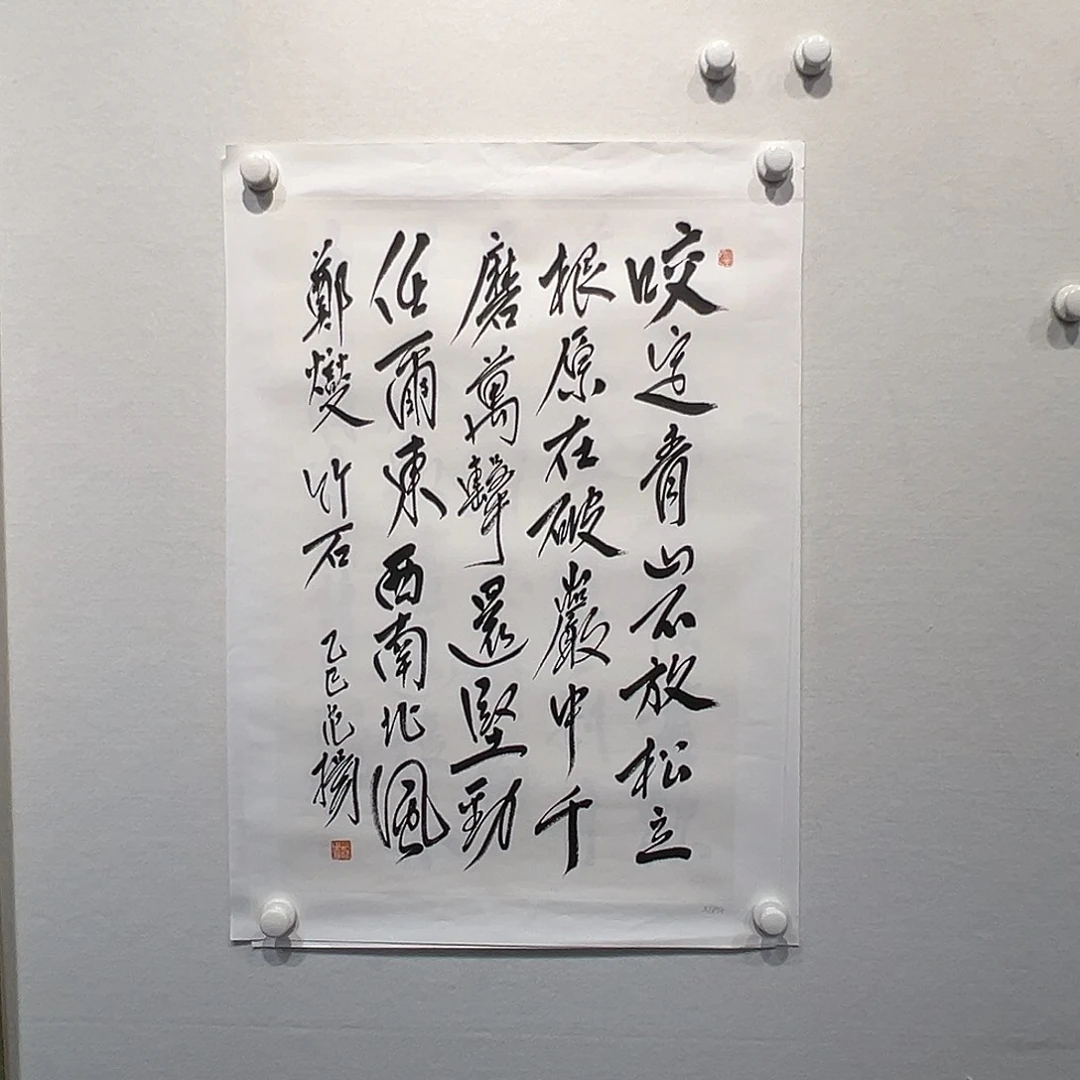 咬定青山不放松立
根原在破巖中千
磨萬擊還堅勁
任爾東西南北風
鄭燮 竹石 乙巳 范揚